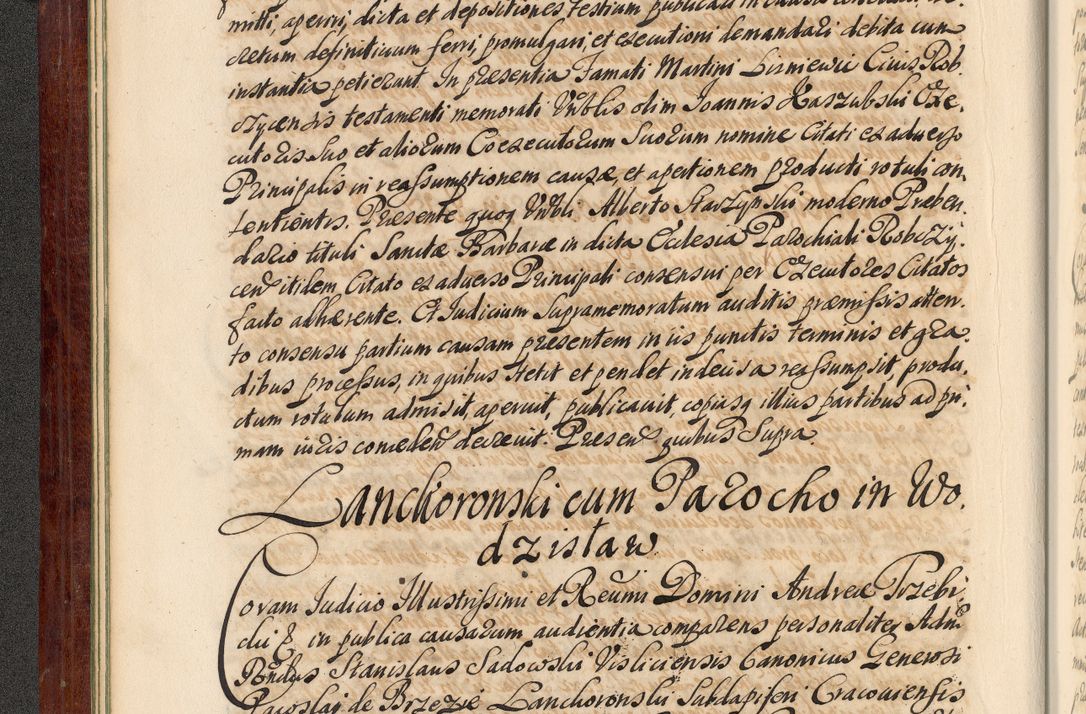 mitti, aperiri, dicta et depositiones testium publicari in causa
cretum definitiuum ferri, promulgari, et executioni demandari debita cum
instantia petierunt. In presentia Famati Martini Lisniewic Ciuis Rob.
czycensis testamenti memorati Vnblis olim Ioannis Kaszubski Exe,
cutoris suo et aliorum Coexecutorum suorum nomine Citati ex aduerso
Principalis in reassumptionem causæ, et apertionem producti rotuli con,
sentientis. Præsente quoq Vnbli Alberto Starzynski moderno Præben,
dario tituli Sanctæ Barbaræ in dicta Ecclesia Parochiali Robczy,
cen itidem Citato ex aduerso Principali consensui per Executores Citatos
facto adhærente. Et Iudicium supramemoratum auditis præmissis atten,
to consensu partium causam præsentem in iis punctis terminis et gra,
dibus processus, in quibus stetit et pendet indecisa reassumpsit, produ,
ctum rotulum admisit, aperuit, publicauit, copiasq illius partibus ad pri,
mam iuris conceden decreuit. Presen quibus supra.
Lanckoronski cum Parocho in Wo,
dzisław
Coram Iudicio Illustrissimi et Reumi Domini Andreæ Trzebi,
cki & in publica causarum audientia comparens personaliter Adm
Rndus Stanislaus Sadowski Visliciensis Canonicus Generosi
Jaroslai de Brzezie Lanckoronski Subdapiferi Cracouiensis